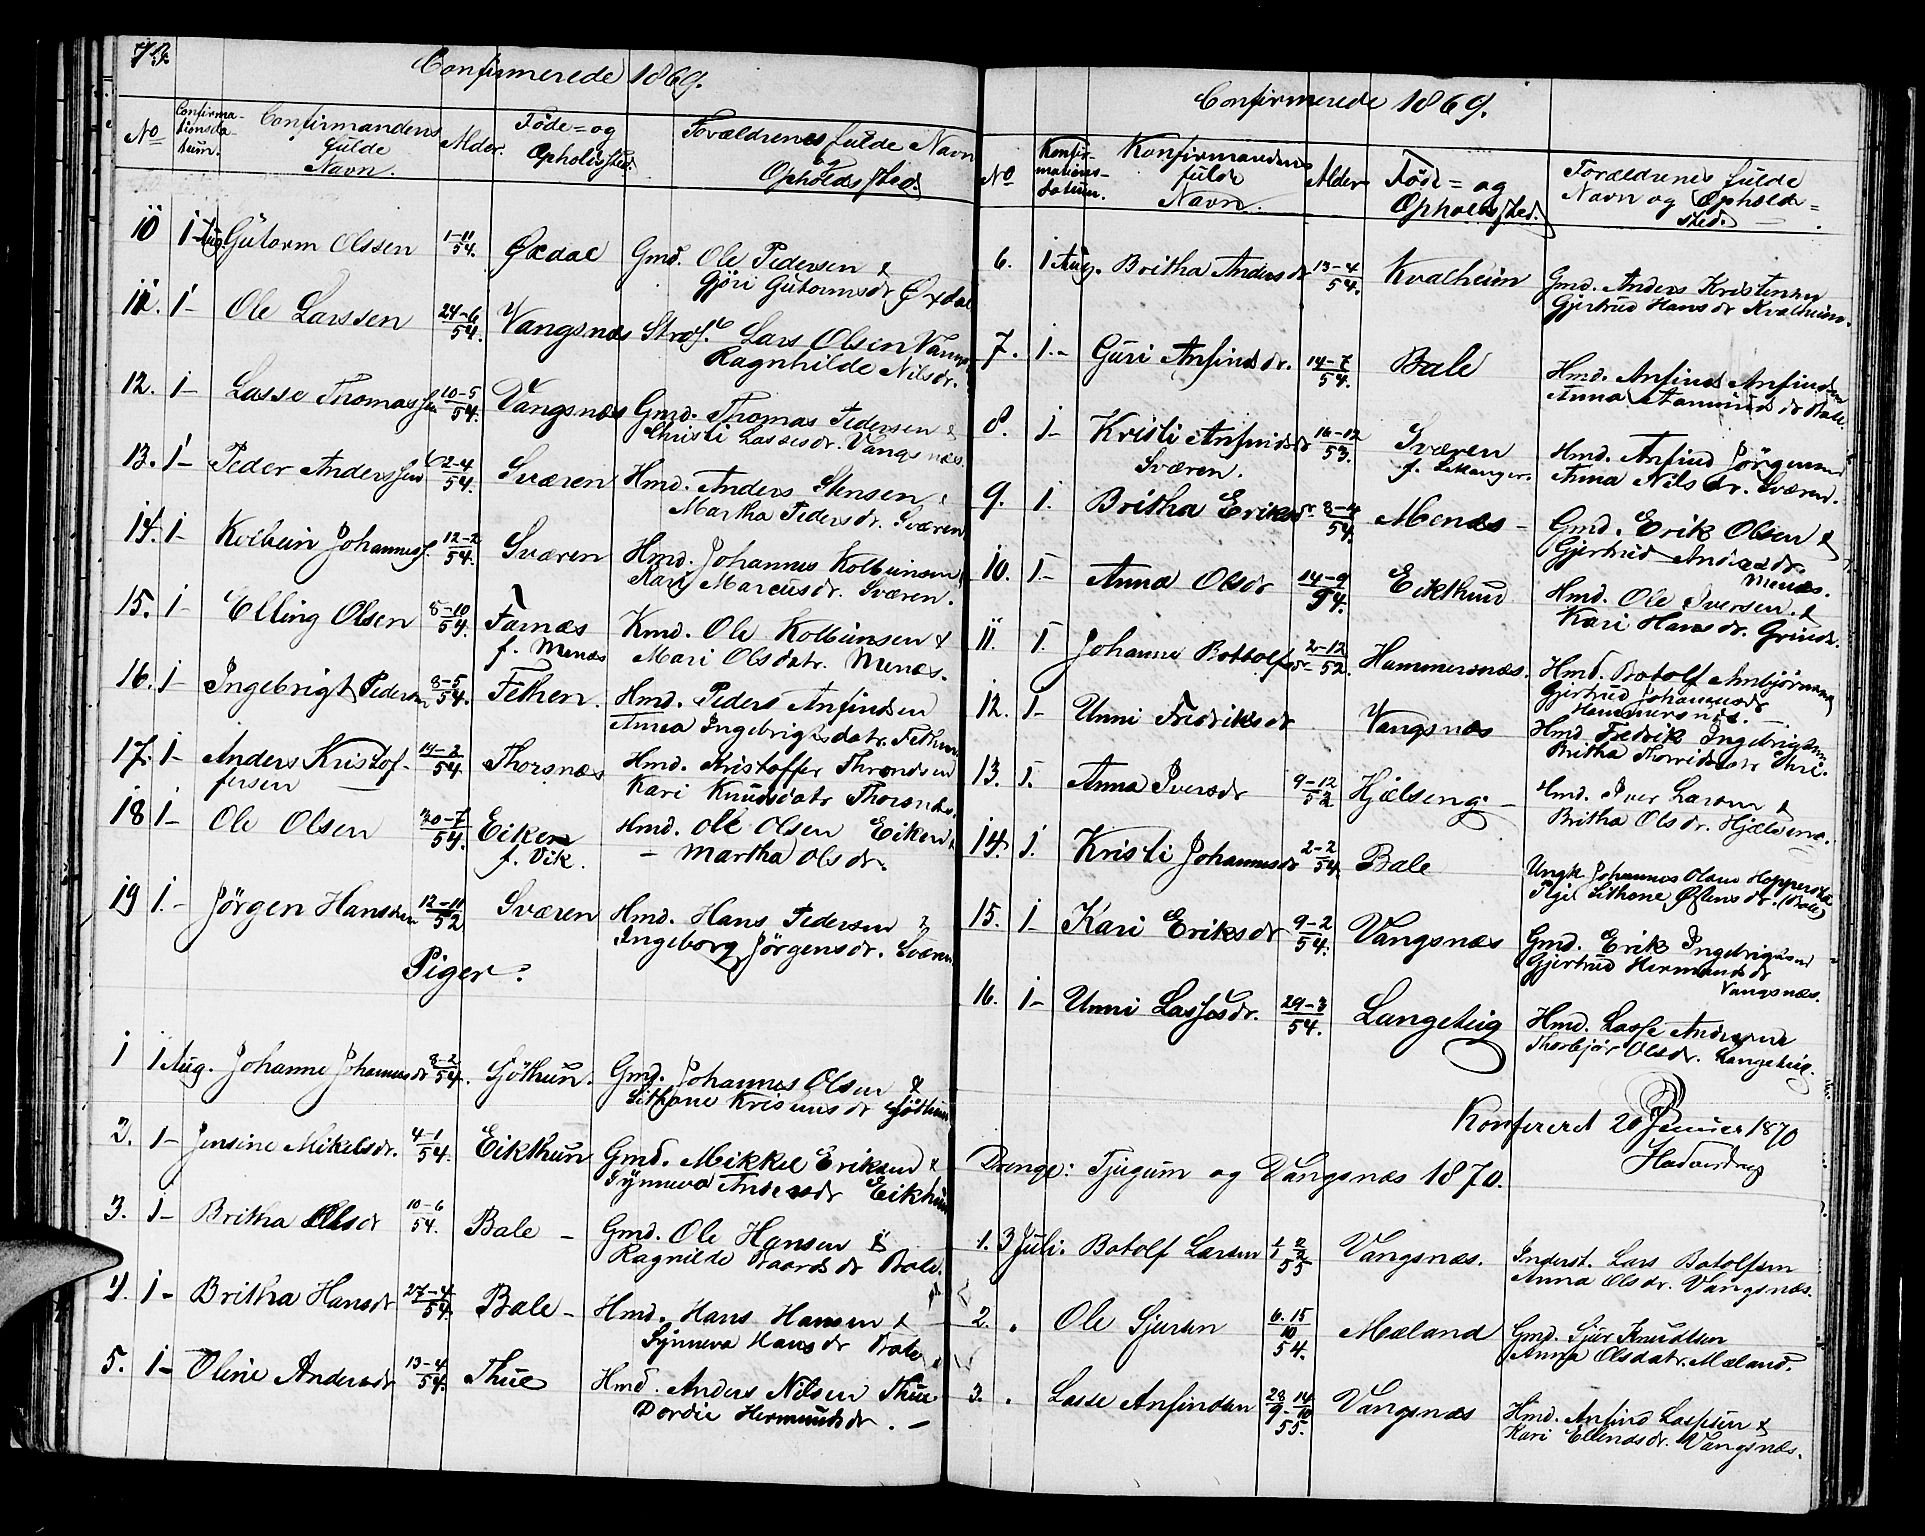 72
Confirmerede 1869.
No Confirmationsdatum. Confirmandens fulde Navn. Alder. Føde= og Opholdssted. Forældrenes fulde Navn & Opholdssted.
10 1 Aug. Gutorm Olssen 1-11/54. Øxdal Gmd. Ole Pedersen &
Gjöri Gutormsdr Øxdal
11. 1- Ole Larssen 24-6/54. Vangsnæs Lars Olsen
Ragnhilde Nilsdr.
12. 1- Lasse Thomassen 10-5/54. Vangsnæs Gmd. Thomas Pedersen &
Christi Lassesdr. Vangsnæs.
13. 1- Peder Anderssen 2-4/54. Sværen Hmd. Anders Stensen &
Martha Pedersdr. Sværen
14. 1- Kolbein Johannes. 12-2/54. Sværen Hmd. Johannes Kolbeinsen
Kari Marcusdr. Sværen.
15. 1- Elling Olsen 8-10/54. Farnæs Kmd. Ole Kolbeinsen &
f. Menæs Mari Olsdatr. Menæs.
16. 1- Ingebrigt Pedersen 8-5/54. Fethen. Hmd. Peders Anfindsen
Anna Ingebrigtsdatr. Fethen
17. 1- Anders Kristof- 14-2/54 Thorsnæs Hmd. Kristoffer Throndsen
fersen Kari Knudsdatr Thorsnæs.
18 1- Ole Olsen 30-7/54. Eiken Hmd. Ole Olsen Eiken
f. Vik. - Martha Olsdr.
19 1.- Jörgen Hanssen 12-11/52 Sværen Hmd. Hans Pedersen &
Ingeborg Jörgensdr. Sværen
Piger.
1 1 Aug. Johanne Johannesdr 8-2/54. Sjöthun. Gmd. Johannes Olsen &
Sithone Krisensdr Sjöthun
2. 1- Jensine Mikelsdr. 4-1/54. Eikthun Gmd. Mikkel Eriksen &
Synneva Andersdr Eikthun
3. 1- Britha Olsdr 10-6/54. Bale - Gmd. Ole Hansen &
Ragnilde Baardsdr Bale.
4. 1- Britha Hansdr 27-4/54. Bale - Hmd. Hans Hansen &
Synneva Hansdr Bale
5. 1- Oline Andersdr 13-4/54. Thue Hmd. Anders Nilsen Thue
Dordie Hermundsdr. -
Confirmerede 1869.
No Konfirmations-datum. Konfirmandens fulde Navn. Alder Føde= og Opholdssted. Forældrenes fulde Navn og Opholdssted.
6. 1 Aug. Britha Andersdr 13-4/54. Kvalheim Gmd. Anders Kristensen
Gjertrud Hansdr Kvalheim.
7. 1.- Guri Anfindsdr. 14-7/54. Bale Hmd. Anfind Anfindsen
Anna Aamundsdr Bale.
8. 1- Kristi Anfindsdr 16-12/53. Sværen Hmd. Anfind Jörgensen
Sværen. f. Lekanger. Anna Nilsdr. Sværen.
9. 1. Britha Eriksdr 8-4/54. Menæs - Gmd. Erik Olsen &
Gjertrud Andersdr.
Menæs.
10. 1.- Anna Olsdr 14-9/54. Eikthun Hmd. Ole Iversen &
Kari Hansdr. Grinde.
11 1. Johanne Bottolfsdr 2-12/52. Hammersnæs. Hmd. Botolf Arnbjørnsen
Gjertrud Johannesdr
Hammersnæs.
12. 1- Unni Fredriksdr Vangsnæs Hmd. Fredrik Ingebrigtsen
Britha
13. 1. Anna Iversdr 9-12/52 Hjelseng - Hmd. Iver Larsen &
Britha Olsdr. Hjelseng.
14. 1. Kristi Johannesdr 2-2/54. Bale Ungk. Johannes Olsen Hopperstad
Pige Sithone Østensdr. (Bale)
15. 1- Kari Eriksdr 9-2/54. Vangsnæs Gmd. Erik Ingebrigtsen
Gjertrud Hermundsdr
Vangsnæs.
16. 1- Unni Lassesdr. 29-3/54. Langeteig Hmd. Lasse Andersen
Thorbjör Olsdr. Langeteig.
Konfereret 20 Januar 1870
Drenge: Tjugum og Vangsnæs 1870.
1. 3 Juli. Botolf Larsen 1/1 2/2 55 Vangsnæs. Inderst. Lars Botolfsen
Anna Olsdr. Vangsnæs.
2. . Ole Sjursen 6. 15/10 54. Mæland Gmd. Sjur Knudtsen
Anna Olsdatr. Mæland.
3. . Lasse Anfindsen 28/9-14/10 55. Vangsnæs Hmd. Anfind Lassesen &
Kari Ellendsdr. Vangsnæs.